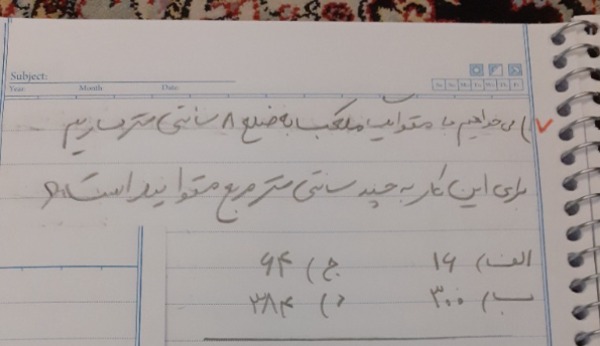 Subject:
Year Month Date
Sa. Su. Mo. Tu. We. Th. Fr.
۱) می خواهیم با مقوا یک مکعب به ضلع ۸ سانتی متر بسازیم
برای این کار به چند سانتی متر مربع مقوا نیاز است؟
الف) ۱۶ ج) ۶۴
ب) ۳۰۰ د) ۳۸۴